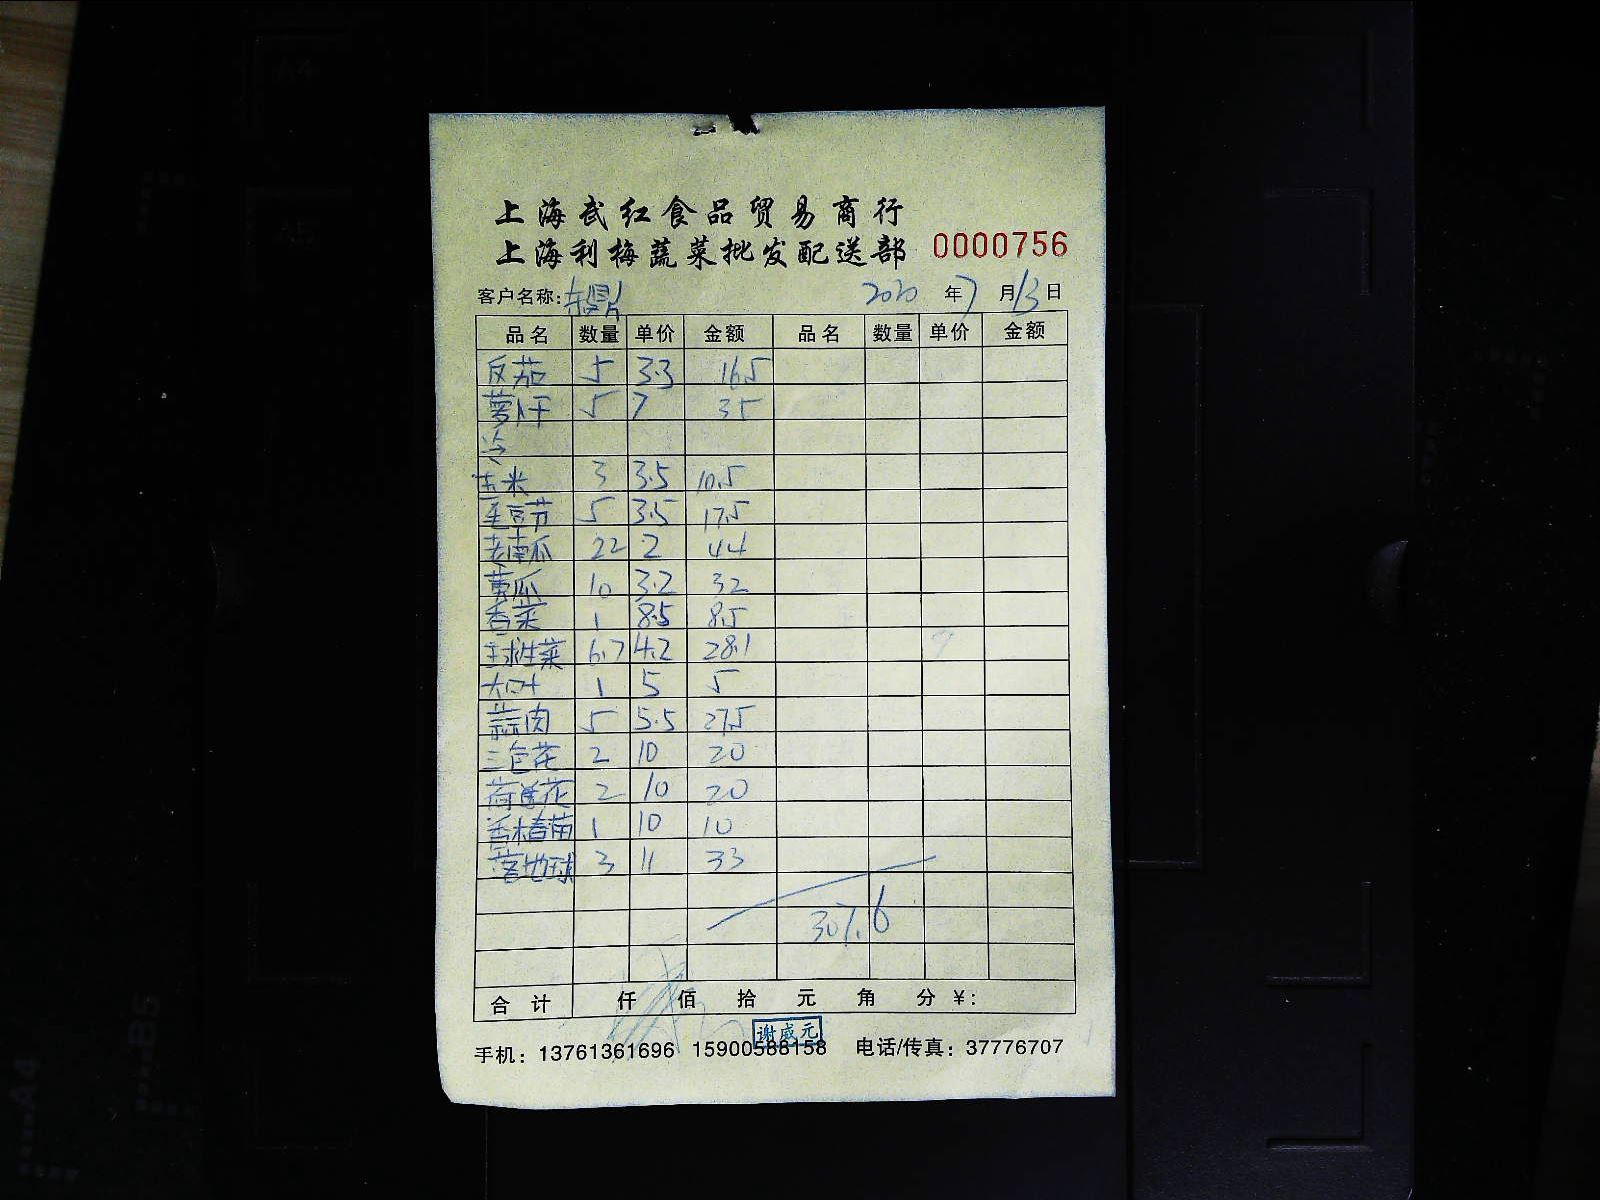 上海武红食品贸易商行
上海利梅蔬菜批发配送部 0000756
客户名称: 2020年7月13日
品名 数量 单价 金额 品名 数量 单价 金额
反茄 5 3.3 16.5
萝卜干 5 7 35
玉米 3 3.5 10.5
毛豆节 5 3.5 17.5
老南瓜 22 2 44
黄瓜 10 3.2 32
香菜 1 8.5 8.5
球生菜 6.7 4.2 28.1
大叶 1 5 5
蒜肉 5 5.5 27.5
三色花 2 10 20
荷莲花 2 10 20
香椿苗 1 10 10
落地球 3 11 33
307.6
合计 仟 佰 拾 元 角 分 ¥:
谢威元
手机: 13761361696 15900588158 电话/传真: 37776707